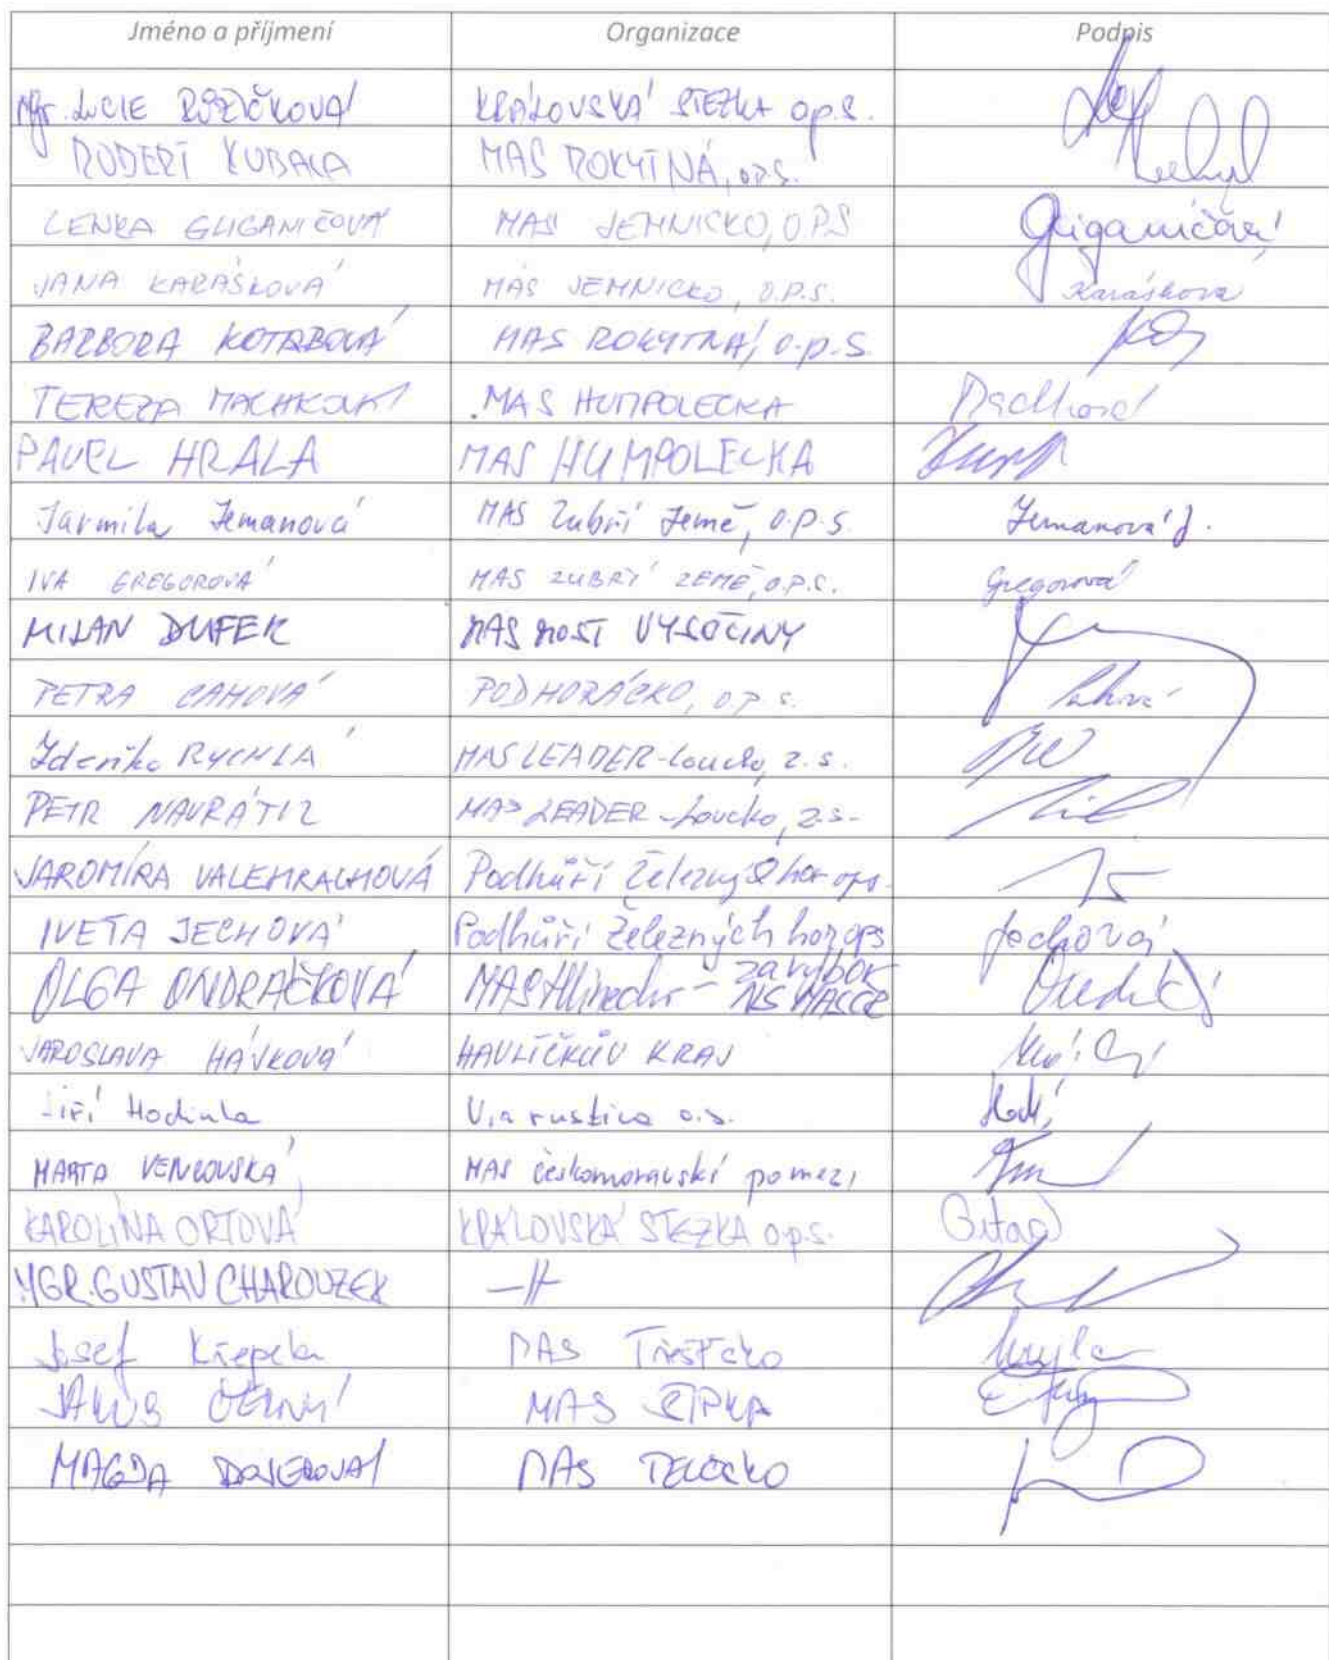 Jméno a příjmení Organizace Podpis
Mgr. LUCIE RŮŽIČKOVÁ KRÁLOVSKÁ STEZKA o.p.s.
ROBERT KUBALA MAS ROKYTNÁ, OPS.
LENKA GLIGANIČOVÁ MAS JEMNICKO, O.P.S Gliganičová
JANA KARÁŠKOVÁ MAS JEMNICKO, O.P.S. Karásková
BARBORA KOTABOVÁ MAS ROKYTNÁ, o.p.s.
TEREZA MACHKOVÁ MAS HUMPOLECKA
PAVEL HRALA MAS HUMPOLECKA
Jarmila Zemanová MAS Zubří Země, o.p.s. Zemanová J.
IVA GREGOROVÁ MAS ZUBŘÍ ZEMĚ, o.p.s. Gregorová
MILAN DUFEK MAS MOST VYSOČINY
PETRA CAHOVÁ PODHORÁCKO, o.p.s. Cahová
Zdeňka RYCHLÁ MAS LEADER-Loucko, z.s.
PETR NAVRÁTIL MAS LEADER-Loucko, z.s.
JAROMÍRA Podhůří Železných hor ops.
IVETA JECHOVÁ Podhůří Železných hor ops Jechová
OLGA ONDRÁČKOVÁ MAS Hlinecko - za výbor NS MAS ČR
JAROSLAVA HÁJKOVÁ HAVLÍČKŮV KRAJ
Jiří Hodinka Via rustica o.s.
MARTA VENCOVSKÁ MAS českomoravské pomezí
KAROLÍNA ORTOVÁ KRÁLOVSKÁ STEZKA o.p.s.
MGR. GUSTAV CHAROUZEK -//-
Josef Křepela MAS Třešťsko
JAKUB ČERNÝ MAS ŠIPKA
MAGDA MAS TELČSKO